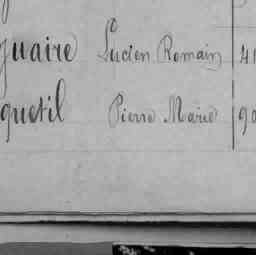 guaire Lucien Romain 41
quetil Pierre Marie 90